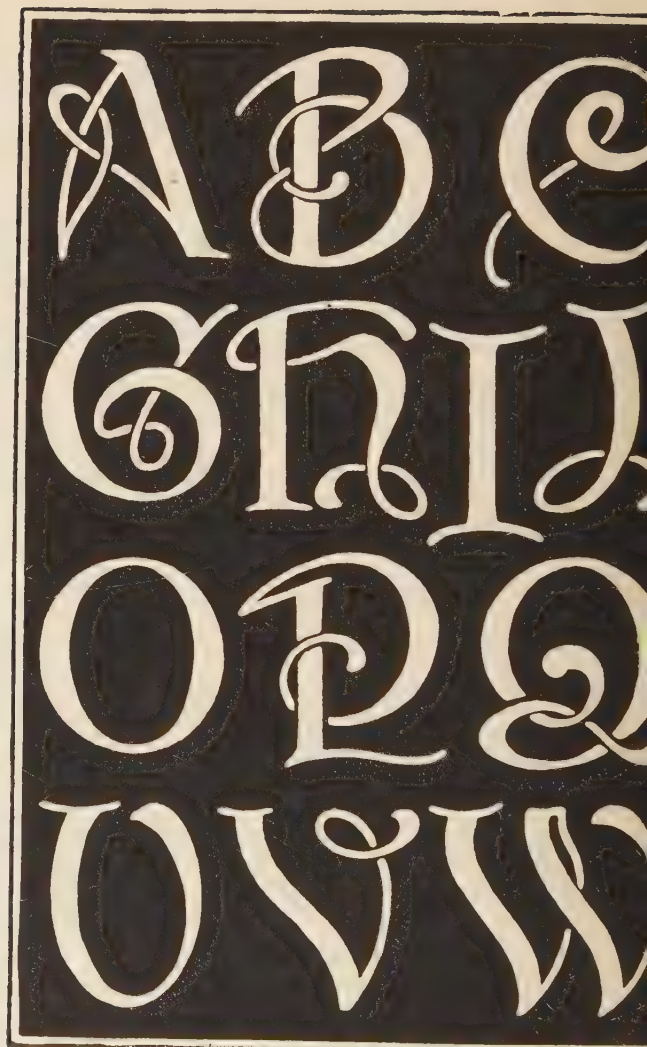 A B C
G H I J
O P Q
U V W